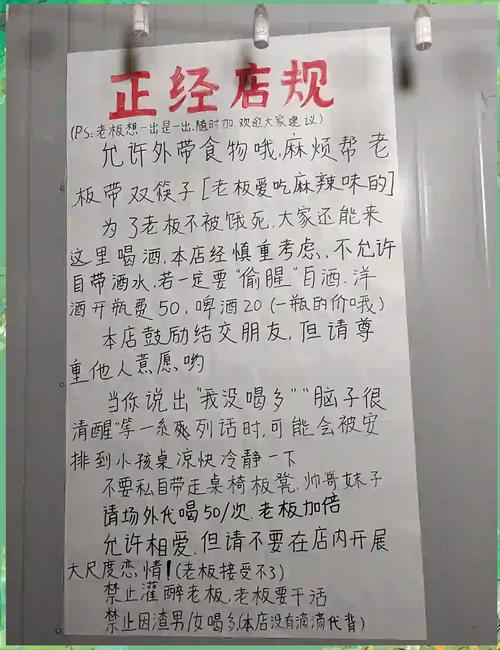 正经店规
(PS:老板想一出是一出,随时加,欢迎大家建议)
允许外带食物哦,麻烦帮老
板带双筷子[老板爱吃麻辣味的]
为了老板不被饿死,大家还能来
这里喝酒,本店经慎重考虑,不允许
自带酒水,若一定要"偷腥"白酒.洋
酒开瓶费50,啤酒20(一瓶的价哦)
本店鼓励结交朋友,但请尊
重他人意愿哟
当你说出"我没喝多""脑子很
清醒"等一系列话时,可能会被安
排到小孩桌凉快冷静一下
不要私自带走桌椅板凳,帅哥妹子
请场外代喝50/次.老板加倍
允许相爱.但请不要在店内开展
大尺度恋情!(老板接受不了)
禁止灌醉老板,老板要干活
禁止因渣男/女喝多,(本店没有滴滴代背)